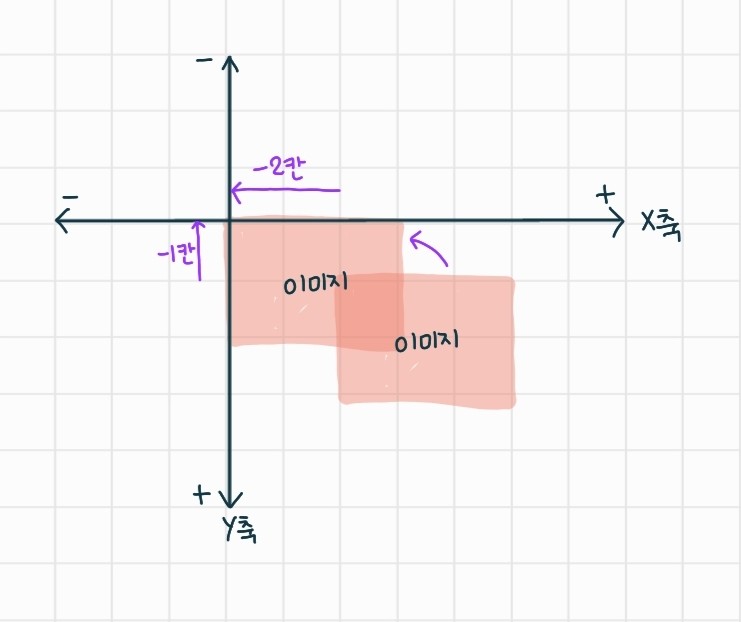 -
-2칸
-
+
X축
-1칸
이미지
이미지
+
Y축